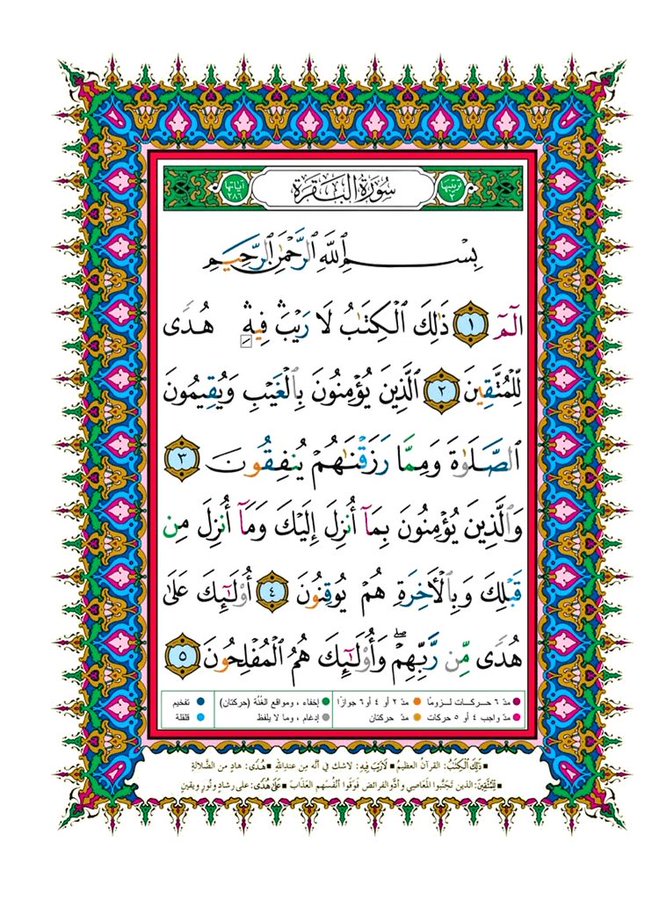 ترتيبها ٢ سُورَةُ البَقَرَةِ آياتها ٢٨٦
بِسْمِ ٱللَّهِ ٱلرَّحْمَٰنِ ٱلرَّحِيمِ
الٓمٓ ١ ذَٰلِكَ ٱلْكِتَٰبُ لَا رَيْبَ ۛ فِيهِ ۛ هُدًى
لِّلْمُتَّقِينَ ٢ ٱلَّذِينَ يُؤْمِنُونَ بِٱلْغَيْبِ وَيُقِيمُونَ
ٱلصَّلَوٰةَ وَمِمَّا رَزَقْنَٰهُمْ يُنفِقُونَ ٣
وَٱلَّذِينَ يُؤْمِنُونَ بِمَآ أُنزِلَ إِلَيْكَ وَمَآ أُنزِلَ مِن
قَبْلِكَ وَبِٱلْءَاخِرَةِ هُمْ يُوقِنُونَ ٤ أُو۟لَٰٓئِكَ عَلَىٰ
هُدًى مِّن رَّبِّهِمْ ۖ وَأُو۟لَٰٓئِكَ هُمُ ٱلْمُفْلِحُونَ ٥
مدّ ٦ حركـات لـزومـًا مدّ ٢ أو ٤ أو ٦ جوازًا إخفاء، ومواقع الغُنَّة (حركتان) تفخيم
مدّ واجب ٤ أو ٥ حركات مدّ حركتان إدغام، وما لا يلفظ قلقلة
ذَٰلِكَ ٱلْكِتَٰبُ: القرآنُ العظيمُ ■ لَا رَيْبَ فِيهِ: لاشك في أنَّه مِن عندِاللهِ ■ هُدًى: هادٍ من الضَّلالةِ
لِّلْمُتَّقِينَ: الذين تَجنَّبوا المَعاصِي و أدَّوا الفرائضَ فوَقَوا أنْفُسَهم العَذابَ ■ عَلَىٰ هُدًى: على رشادٍ ونُورٍ ويقينٍ